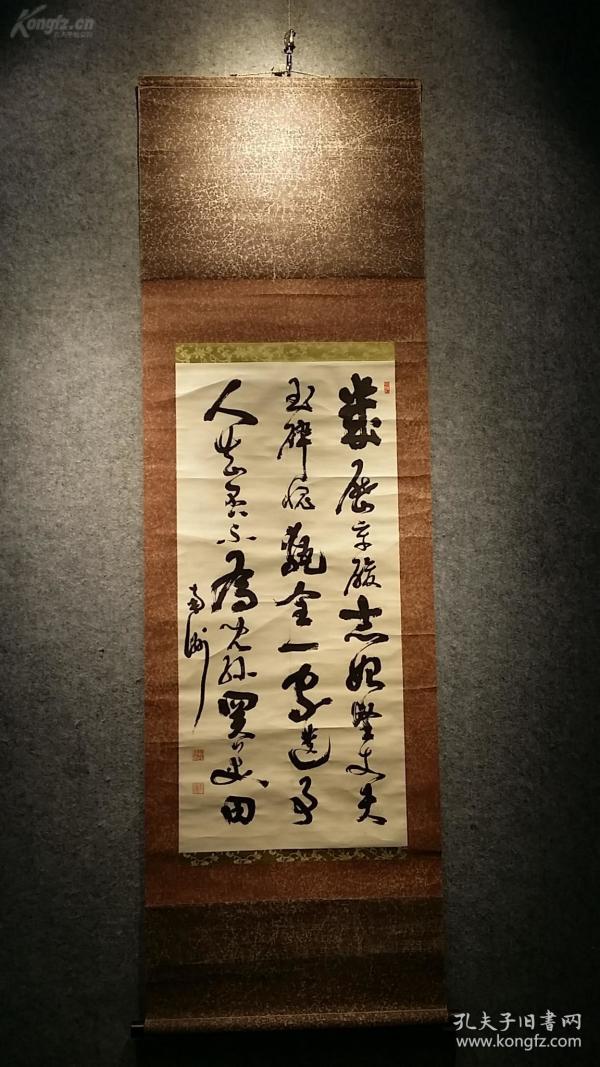 Kongfz.cn
幾歴辛酸志始堅丈夫
玉砕愧甎全一家遺事
人知否不為児孫買美田
南洲
孔夫子旧書网
www.kongfz.com